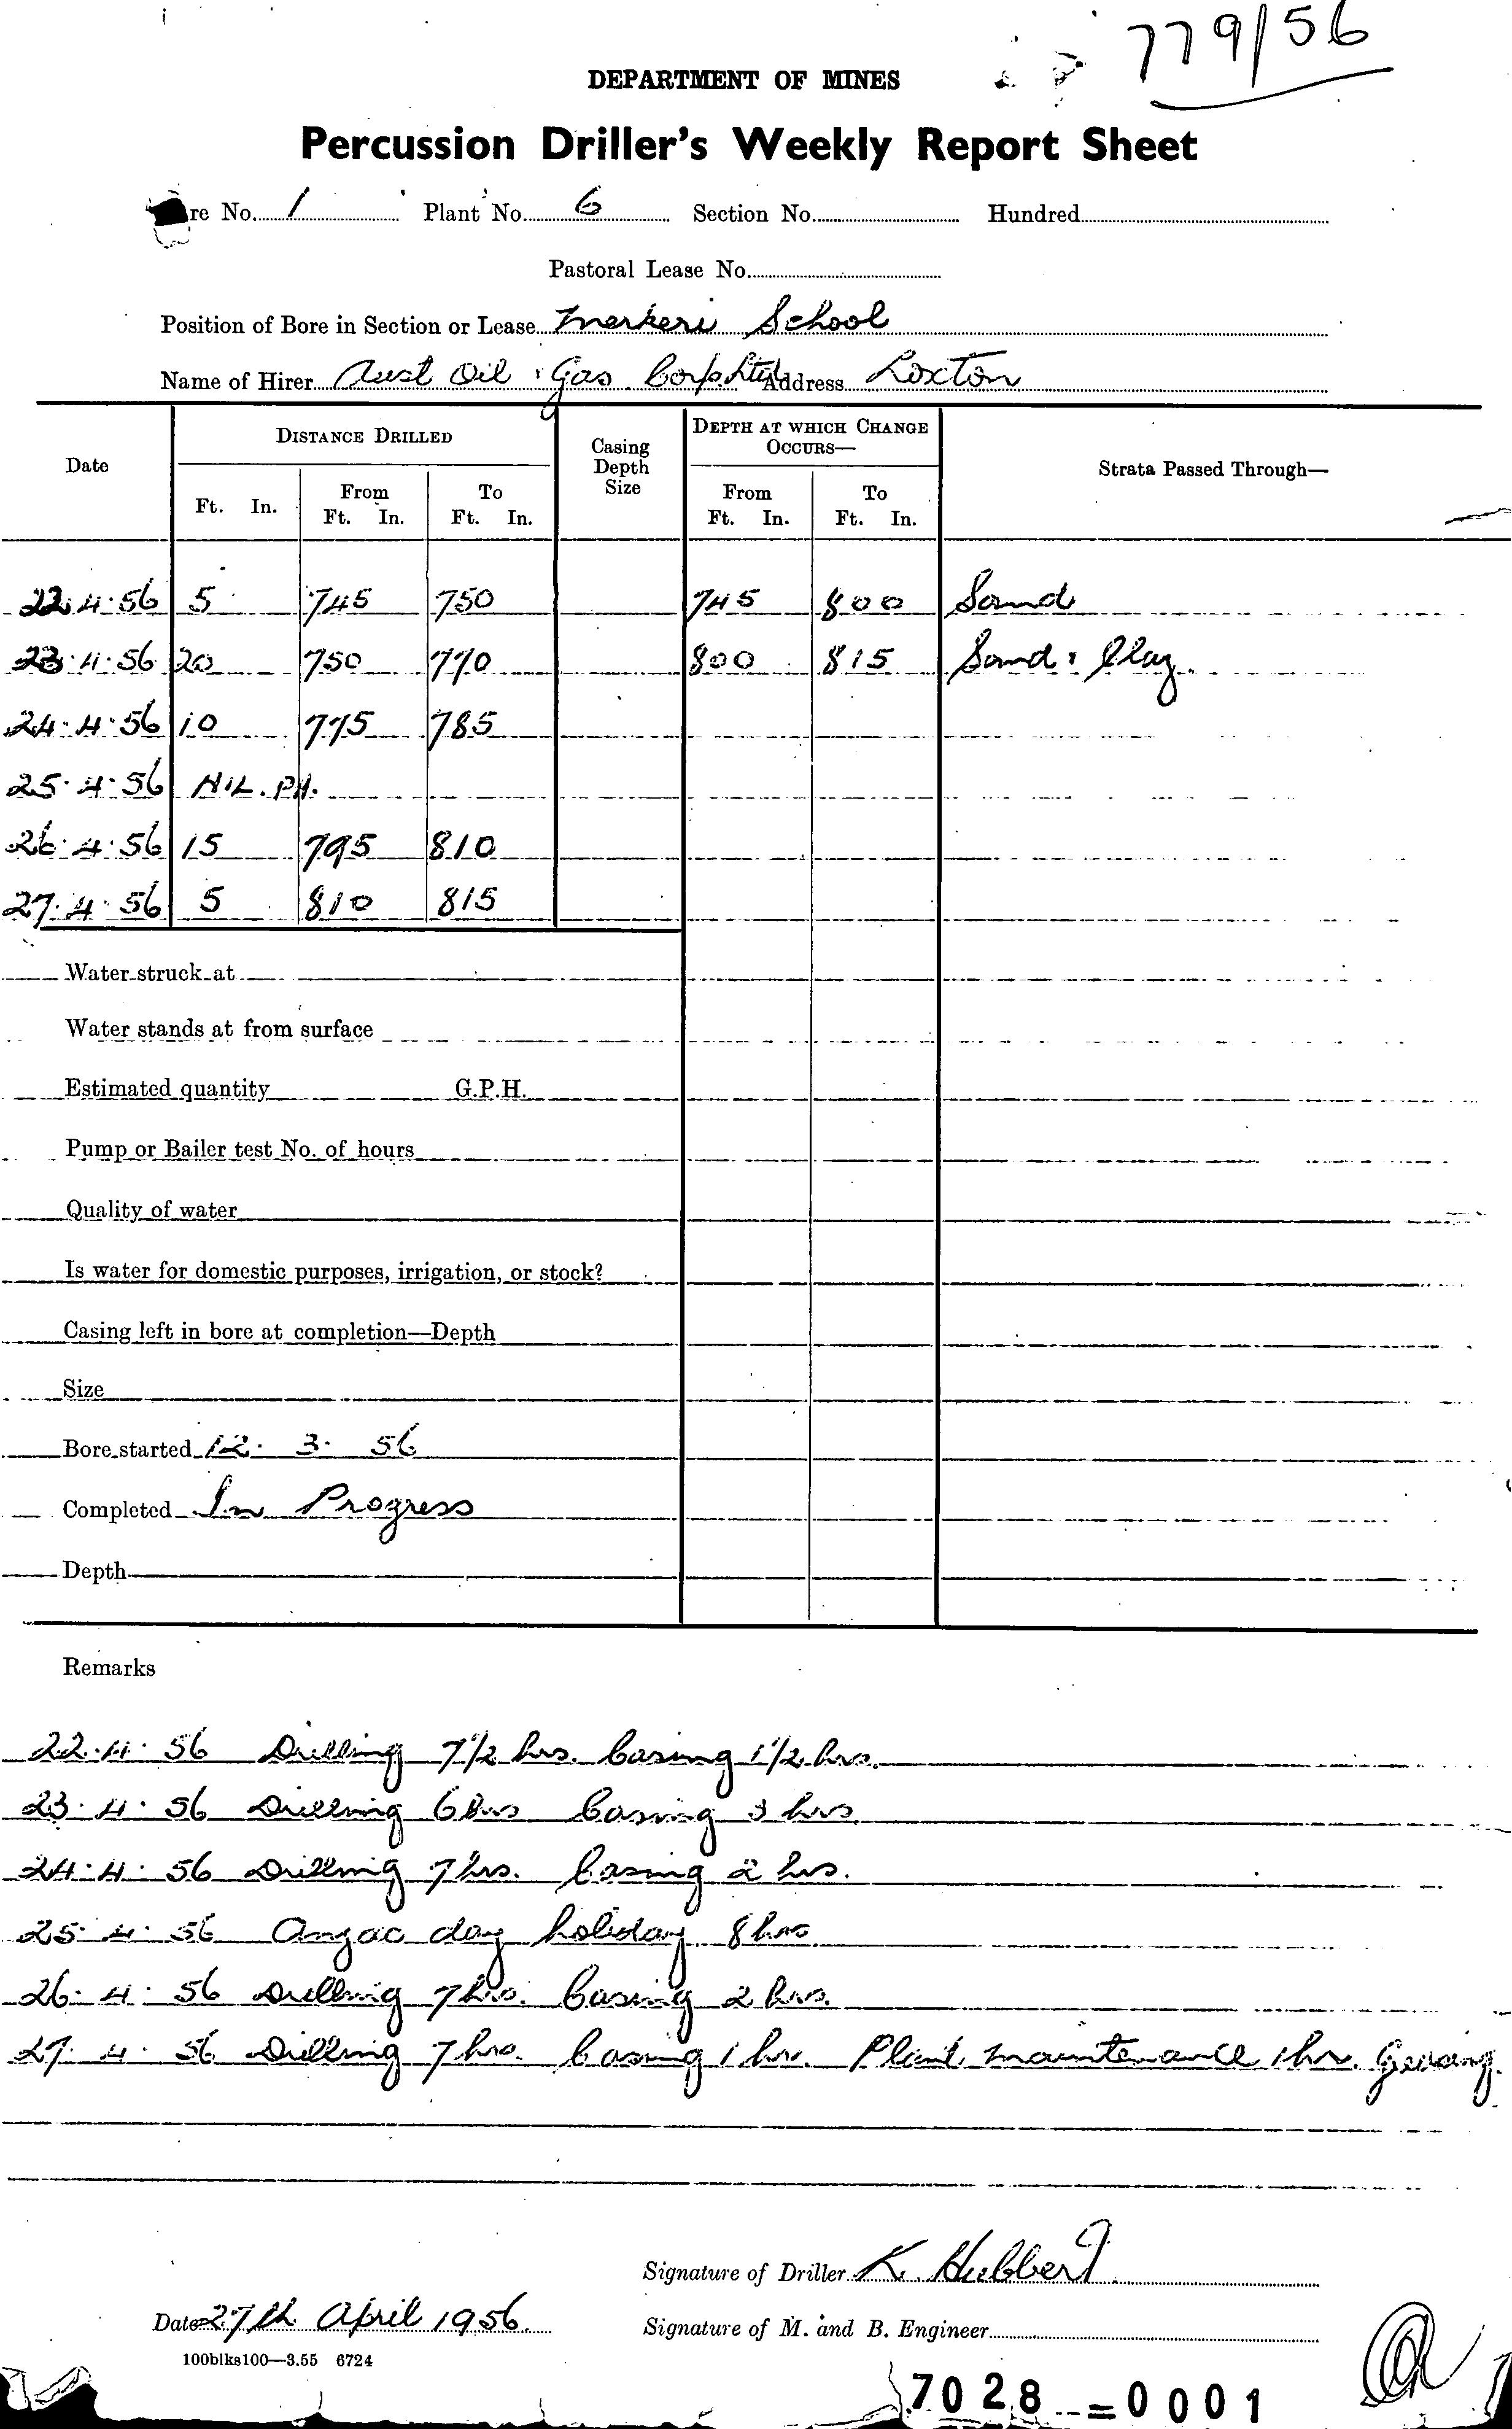 779/56
DEPARTMENT OF MINES
Percussion Driller's Weekly Report Sheet
re No. 1 Plant No. 6 Section No. Hundred
Pastoral Lease No.
Position of Bore in Section or Lease School
Name of Hirer Aust Oil & Gas Corp Ltd Address Loxton
Date DISTANCE DRILLED Casing Depth Size DEPTH AT WHICH CHANGE OCCURS— Strata Passed Through—
Ft. In. From Ft. In. To Ft. In. From Ft. In. To Ft. In.
22.4.56 5 745 750 745 800 Sand
23.4.56 20 750 770 800 815 Sand & Clay.
24.4.56 10 775 785
25.4.56 NIL. P.H.
26.4.56 15 795 810
27.4.56 5 810 815
Water struck at
Water stands at from surface
Estimated quantity G.P.H.
Pump or Bailer test No. of hours
Quality of water
Is water for domestic purposes, irrigation, or stock?
Casing left in bore at completion—Depth
Size
Bore started 12. 3. 56
Completed In Progress
Depth
Remarks
22.4.56 Drilling 7 1/2 hrs. Casing 1 1/2 hrs.
23.4.56 Drilling 6 hrs Casing 3 hrs.
24.4.56 Drilling 7 hrs. Casing 2 hrs.
25.4.56 Anzac day holiday 8 hrs
26.4.56 Drilling 7 hrs. Casing 2 hrs.
27.4.56 Drilling 7 hrs. Casing 1 hr. Plant maintenance 1 hr.
Signature of Driller K. Hubbert
Date 27th April 1956.
Signature of M. and B. Engineer
100blks100—3.55 6724
7028=0001